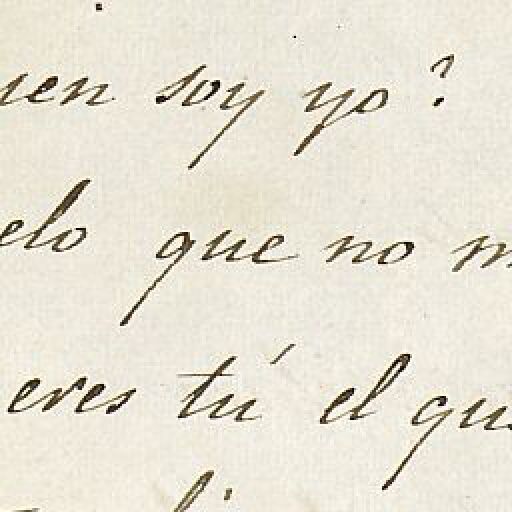 uen soy yo?
elo que no m
eres tú el que